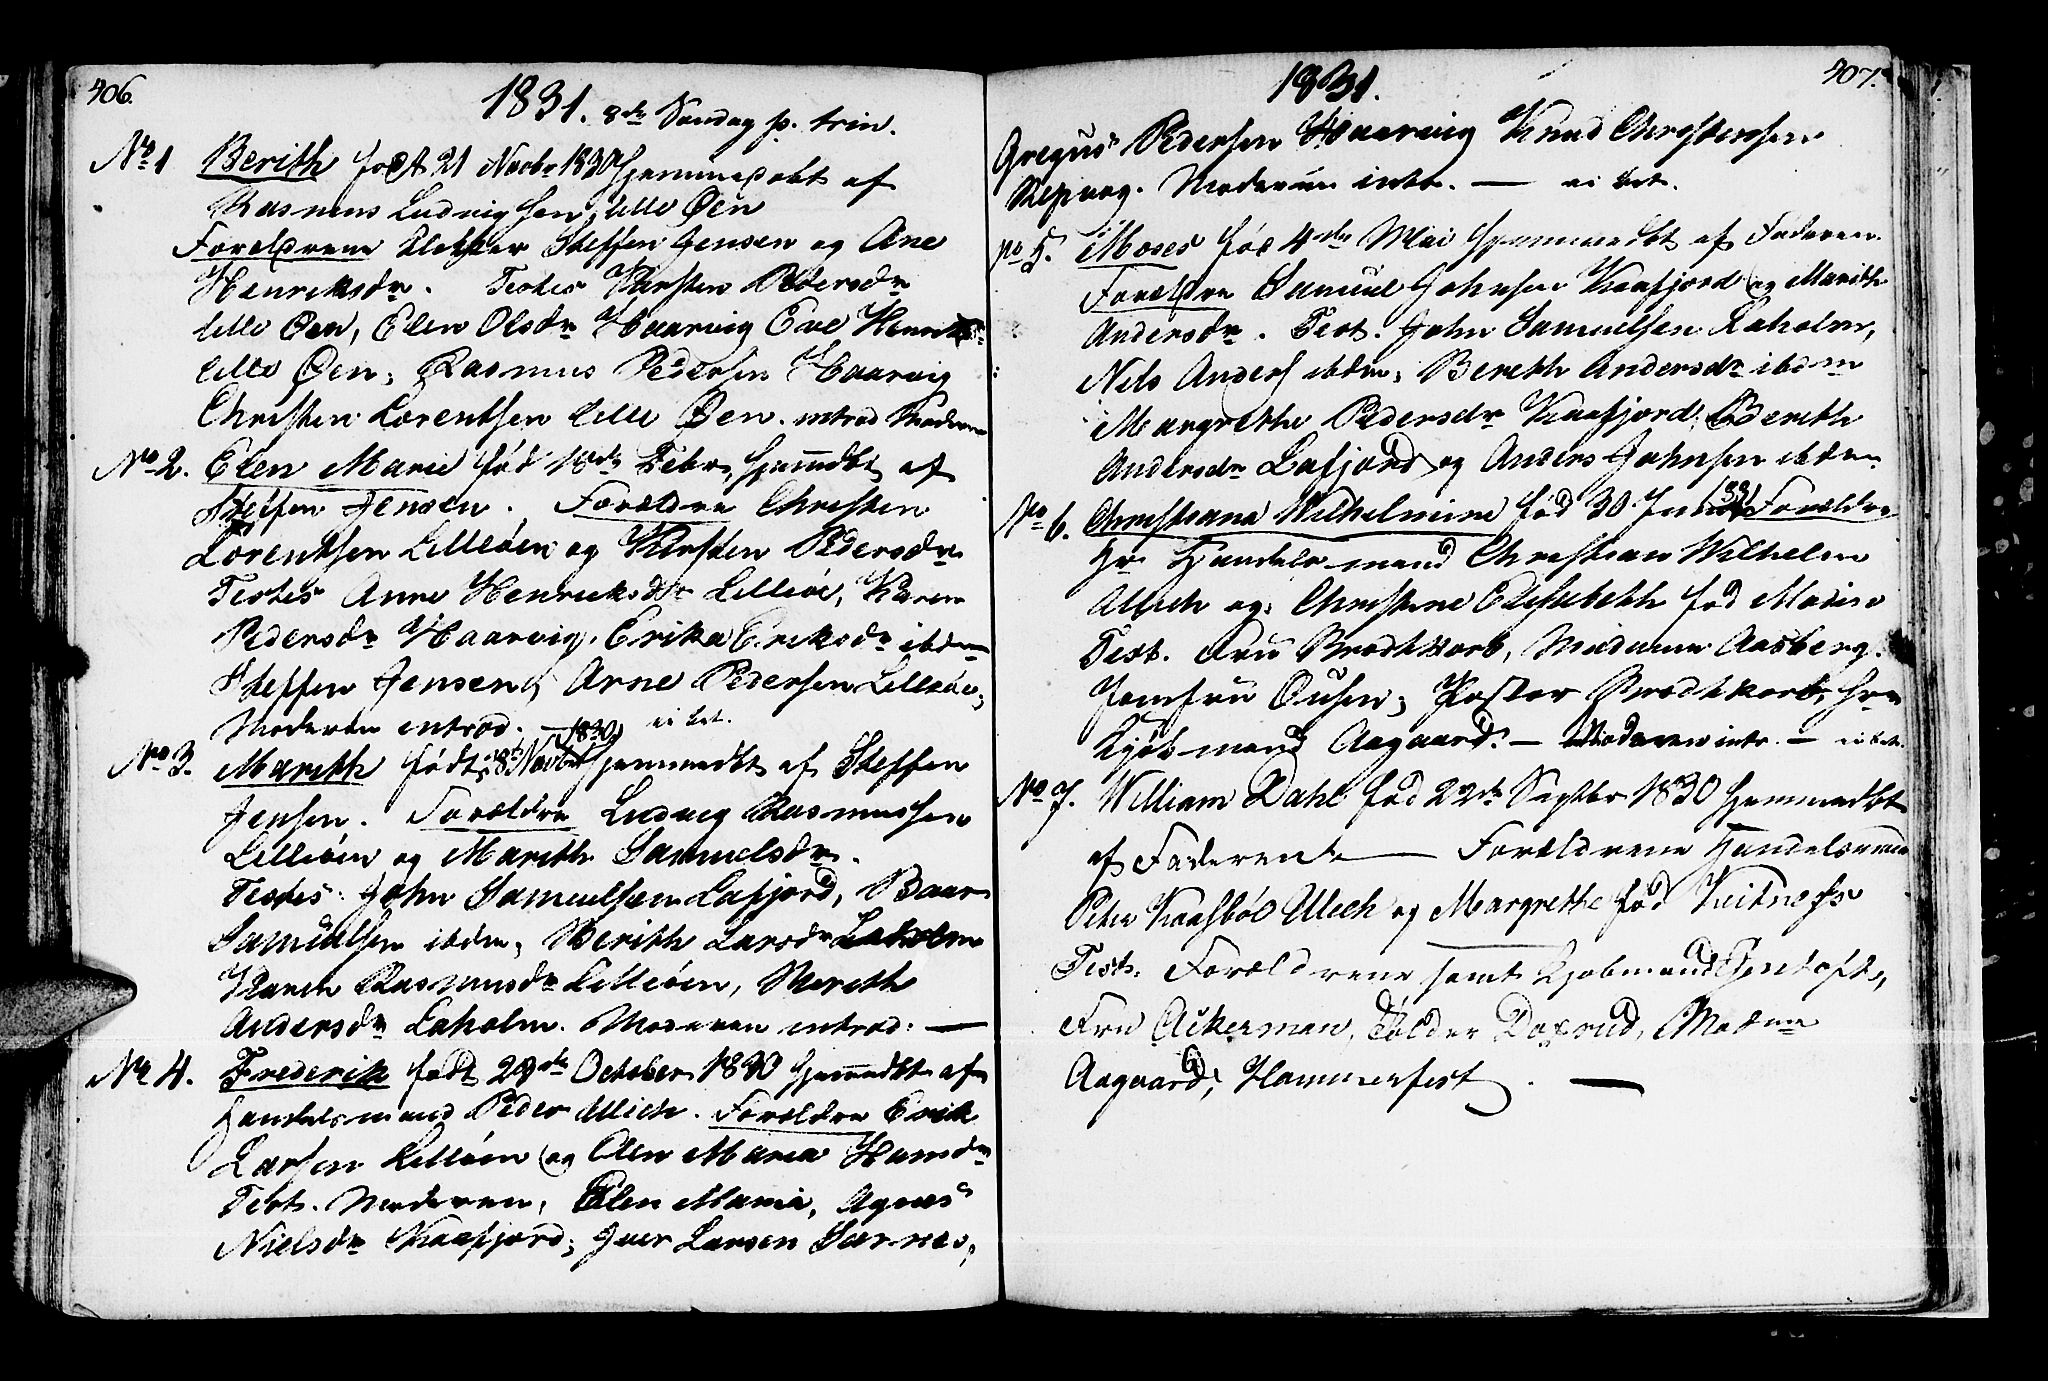 406.
1831. 8de Søndag p. trin.
No 1 Berith født 21 Novbr 1830 Hjemmedøbt af
Rasmus Ludvigsen, lille Øen
Forældrene Klokker Steffen Jensen og Ane
Henriksdr. Testes Kirsten Pedersdr
lille Øen, Elen Olsdr Haarvig Eve Henriksdr
lille Øen, Rasmus Pedersen Haarvig
Christen Lorentsen lille Øen. introd Moderen
No 2. Elen Marie fød 18de Febr, Hjemdbt af
Steffen Jensen. Forældre Christen
Lorentsen Lilleöen og Kirsten Pedersdr
Testes Anne Henriksdr Lilleöe, Karen
Pedersdr Haarvig, Erika Eriksdr ibdm
Steffen Jensen, Arne Pedersen Lilleöe,
Moderen introd. — ei bet.
No 3. Marith født 18de Novbr 1830 Hjemmedbt af Steffen
Jensen. Forældre Ludvig Rasmussen
Lilleöen og Marith Samuelsdr.
Testes: John Samuelsen Lafjord, Baar
Samuelsen ibdm, Berith Larsdr Laholm
Karen Rasmusdr Lilleöen, Mereth
Andersdr Laholm. Moderen introd. —
No 4. Frederik født 29de October 1830 Hjemmedbt af
Handelsmand Peder Ulich. Forældre Erik
Larsen Lilleöen og Elen Maria Hansdr
Test. Moderen, Elen Maria, Agnes
Nielsdr Kaafjord, Iver Larsen Sarnes,
407.
1831.
Gregus Pedersen Haarvig Knud Christensen
Repvog. Moderen intr. — ei bet.
No 5. Moses fød 4de Mai Hjemmedbt af Faderen.
Forældre Samuel Johnsen Kaafjord og Marith
Andersdr. Test. John Samuelsen Laholm,
Nils Anders ibdm, Bereth Andersdr ibdm
Margrethe Pedersdr Kaafjord, Berith
Andersdr Lafjord og Anders Johnsen ibdm
No 6. Christiana Wilhelmine fød 30 Juni 1831 Forældre
Hr Handelsmand Christian Wilhelm
Ulich og Christine Elisabeth fød
Test. Fru Brodtkorb, Madame Aasberg.
Jomfru Ousen, Pastor Brodtkorb, Hrr
Kjøbmand Aagaard. — Moderen intr. — ei bet.
No 7. William Dahl fød 22de Septbr 1830 Hjemmedbt
af Faderen — Forældrene Handelsmand
Peter Kaasböl Ulich og Margrethe fød
Test. Forældrene samt Kjøbmand Gentoft,
Fru Ackerman, Tolder Doxrud, Madme
Aagaard, Hammerfest. —